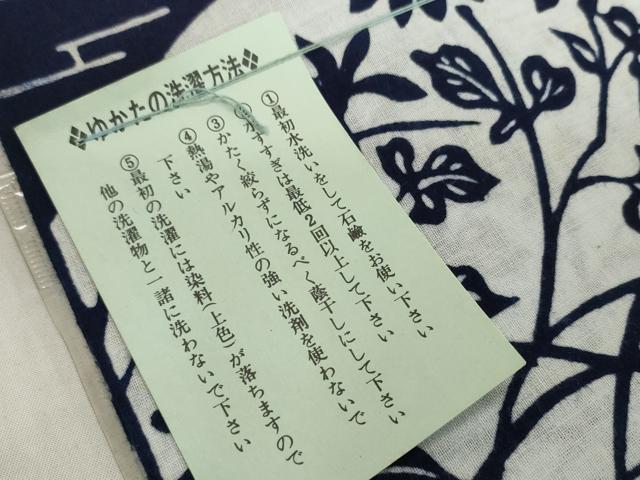 ❖ゆかたの洗濯方法❖
①最初水洗いをして石鹸をお使い下さい
②水すすぎは最低2回以上して下さい
③かたく絞らずになるべく蔭干しにして下さい
④熱湯やアルカリ性の強い洗剤を使わないで
下さい
⑤最初の洗濯には染料(上色)が落ちますので
他の洗濯物と一諸に洗わないで下さい